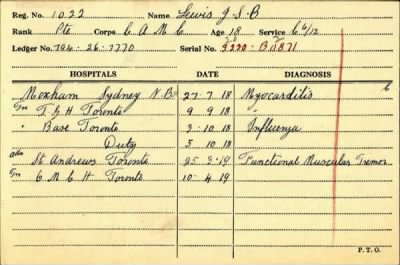 Reg. No. 1022 Name Lewis J. S. B
Rank Pte Corps C A M C Age 18 Service 6 6/12
Ledger No. 794-26-7770 Serial No. B11871
HOSPITALS DATE DIAGNOSIS
Moxham Sydney N.B. 27 7 18 Myocarditis 6
Trn T G H Toronto 9 9 18 "
" Base Toronto 3 10 18 Influenza
Duty 5 10 18
Adm St Andrews Toronto 25 3 19 Functional Muscular Tremor
Trn C M C H Toronto 10 4 19
P. T. O.